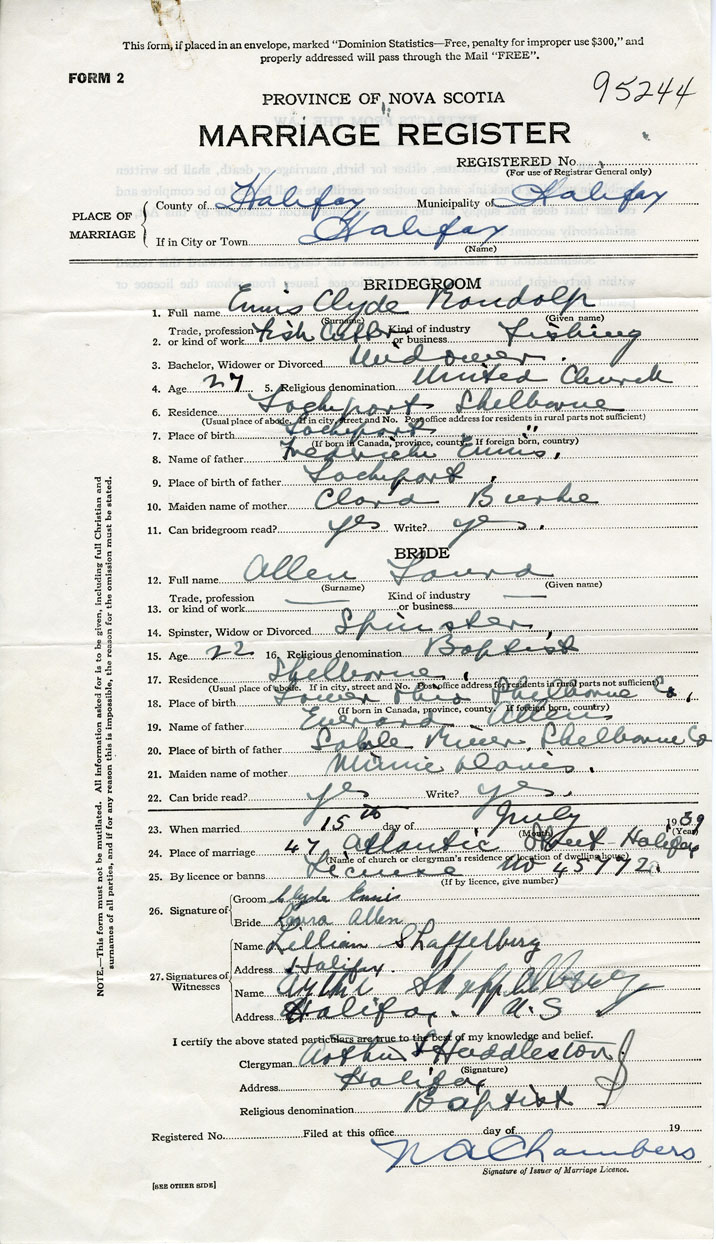 This form, if placed in an envelope, marked "Dominion Statistics—Free, penalty for improper use $300," and
properly addressed will pass through the Mail "FREE".
FORM 2
95244
PROVINCE OF NOVA SCOTIA
MARRIAGE REGISTER
REGISTERED No.
(For use of Registrar General only)
PLACE OF MARRIAGE
County of Halifax Municipality of Halifax
If in City or Town Halifax
(Name)
BRIDEGROOM
1. Full name Ennis Clyde Randolph
(Surname) (Given name)
2. Trade, profession or kind of work Fish Cutter Kind of industry or business Fishing
3. Bachelor, Widower or Divorced Widower.
4. Age 27 5. Religious denomination United Church
6. Residence Lockeport Shelburne
(Usual place of abode. If in city, street and No. Post office address for residents in rural parts not sufficient)
7. Place of birth Lockeport "
(If born in Canada, province, county. If foreign born, country)
8. Name of father Frederick Ennis.
9. Place of birth of father Lockeport.
10. Maiden name of mother Clara Burke
11. Can bridegroom read? yes Write? yes.
BRIDE
12. Full name Allen Laura
(Surname) (Given name)
13. Trade, profession or kind of work — Kind of industry or business —
14. Spinster, Widow or Divorced Spinster.
15. Age 22 16. Religious denomination Baptist
17. Residence Shelburne.
(Usual place of abode. If in city, street and No. Post office address for residents in rural parts not sufficient)
18. Place of birth Lower Ohio Shelburne Co.
(If born in Canada, province, county. If foreign born, country)
19. Name of father Everard Allen
20. Place of birth of father Sable River, Shelburne Co
21. Maiden name of mother Minnie Davis.
22. Can bride read? yes Write? yes.
23. When married 15th day of July 1939
(Month) (Year)
24. Place of marriage 47 Atlantic Street Halifax
(Name of church or clergyman's residence or location of dwelling house)
25. By licence or banns License No 45772.
(If by licence, give number)
26. Signature of
Groom Clyde Ennis
Bride Laura Allen
27. Signatures of Witnesses
Name Lillian Shaffelburg
Address Halifax.
Name Shaffelburg
Address Halifax. N.S
I certify the above stated particulars are true to the best of my knowledge and belief.
Clergyman Arthur S Huddleston
(Signature)
Address Halifax
Religious denomination Baptist
Registered No. Filed at this office day of 19
N A Chambers
Signature of Issuer of Marriage Licence.
[SEE OTHER SIDE]
NOTE.—This form must not be mutilated. All information asked for is to be given, including full Christian and
surnames of all parties, and if for any reason this is impossible, the reason for the omission must be stated.